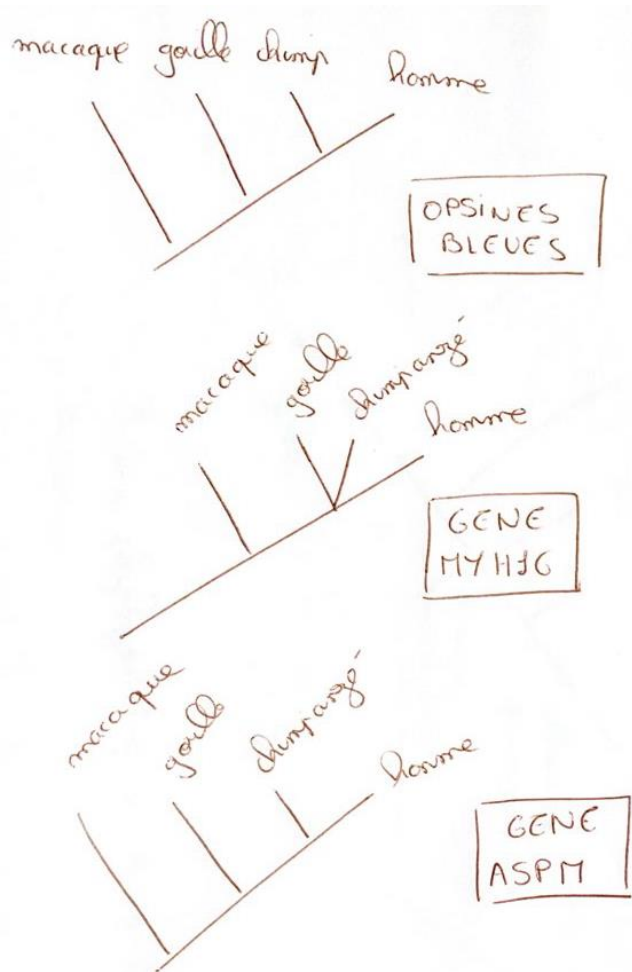 macaque gorille chimp homme
OPSINES
BLEUES
macaque
gorille
chimpanzé
homme
GENE
MYH16
macaque
gorille
chimpanzé
homme
GENE
ASPM